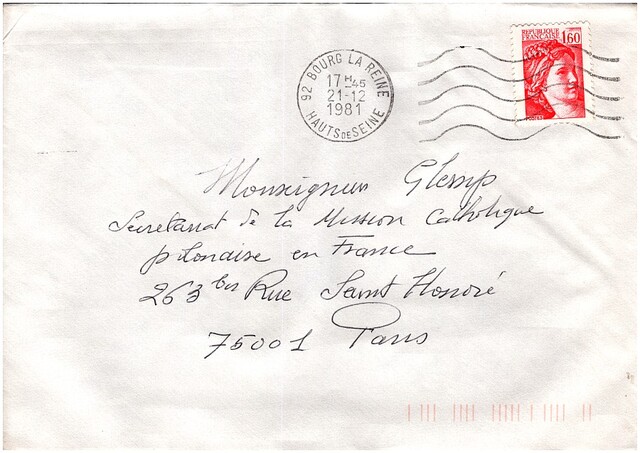 REPUBLIQUE
FRANCAISE 1,60
92 BOURG LA REINE
17H45
21-12
1981
HAUTS DE SEINE
Monseigneur Glemp
Secretariat de la Mission Catholique
polonaise en France
263 bis Rue Saint Honoré
75001 Paris